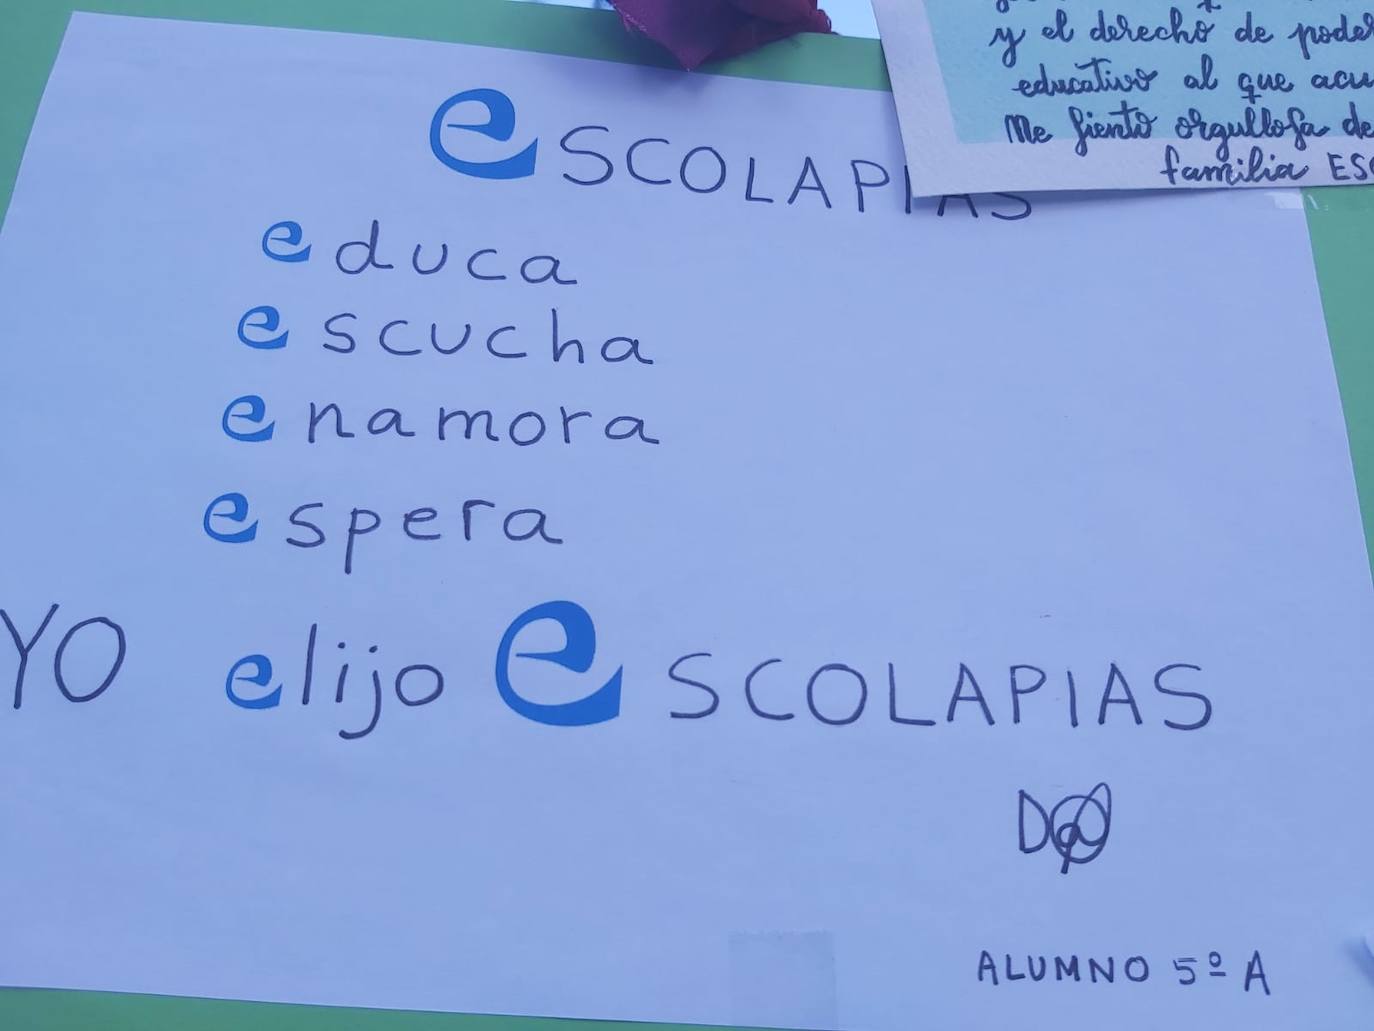 y el derecho de
educativo al que
Me siento orgullosa de
familia
eSCOLAPIAS
educa
escucha
enamora
espera
YO elijo eSCOLAPIAS
ALUMNO 5º A